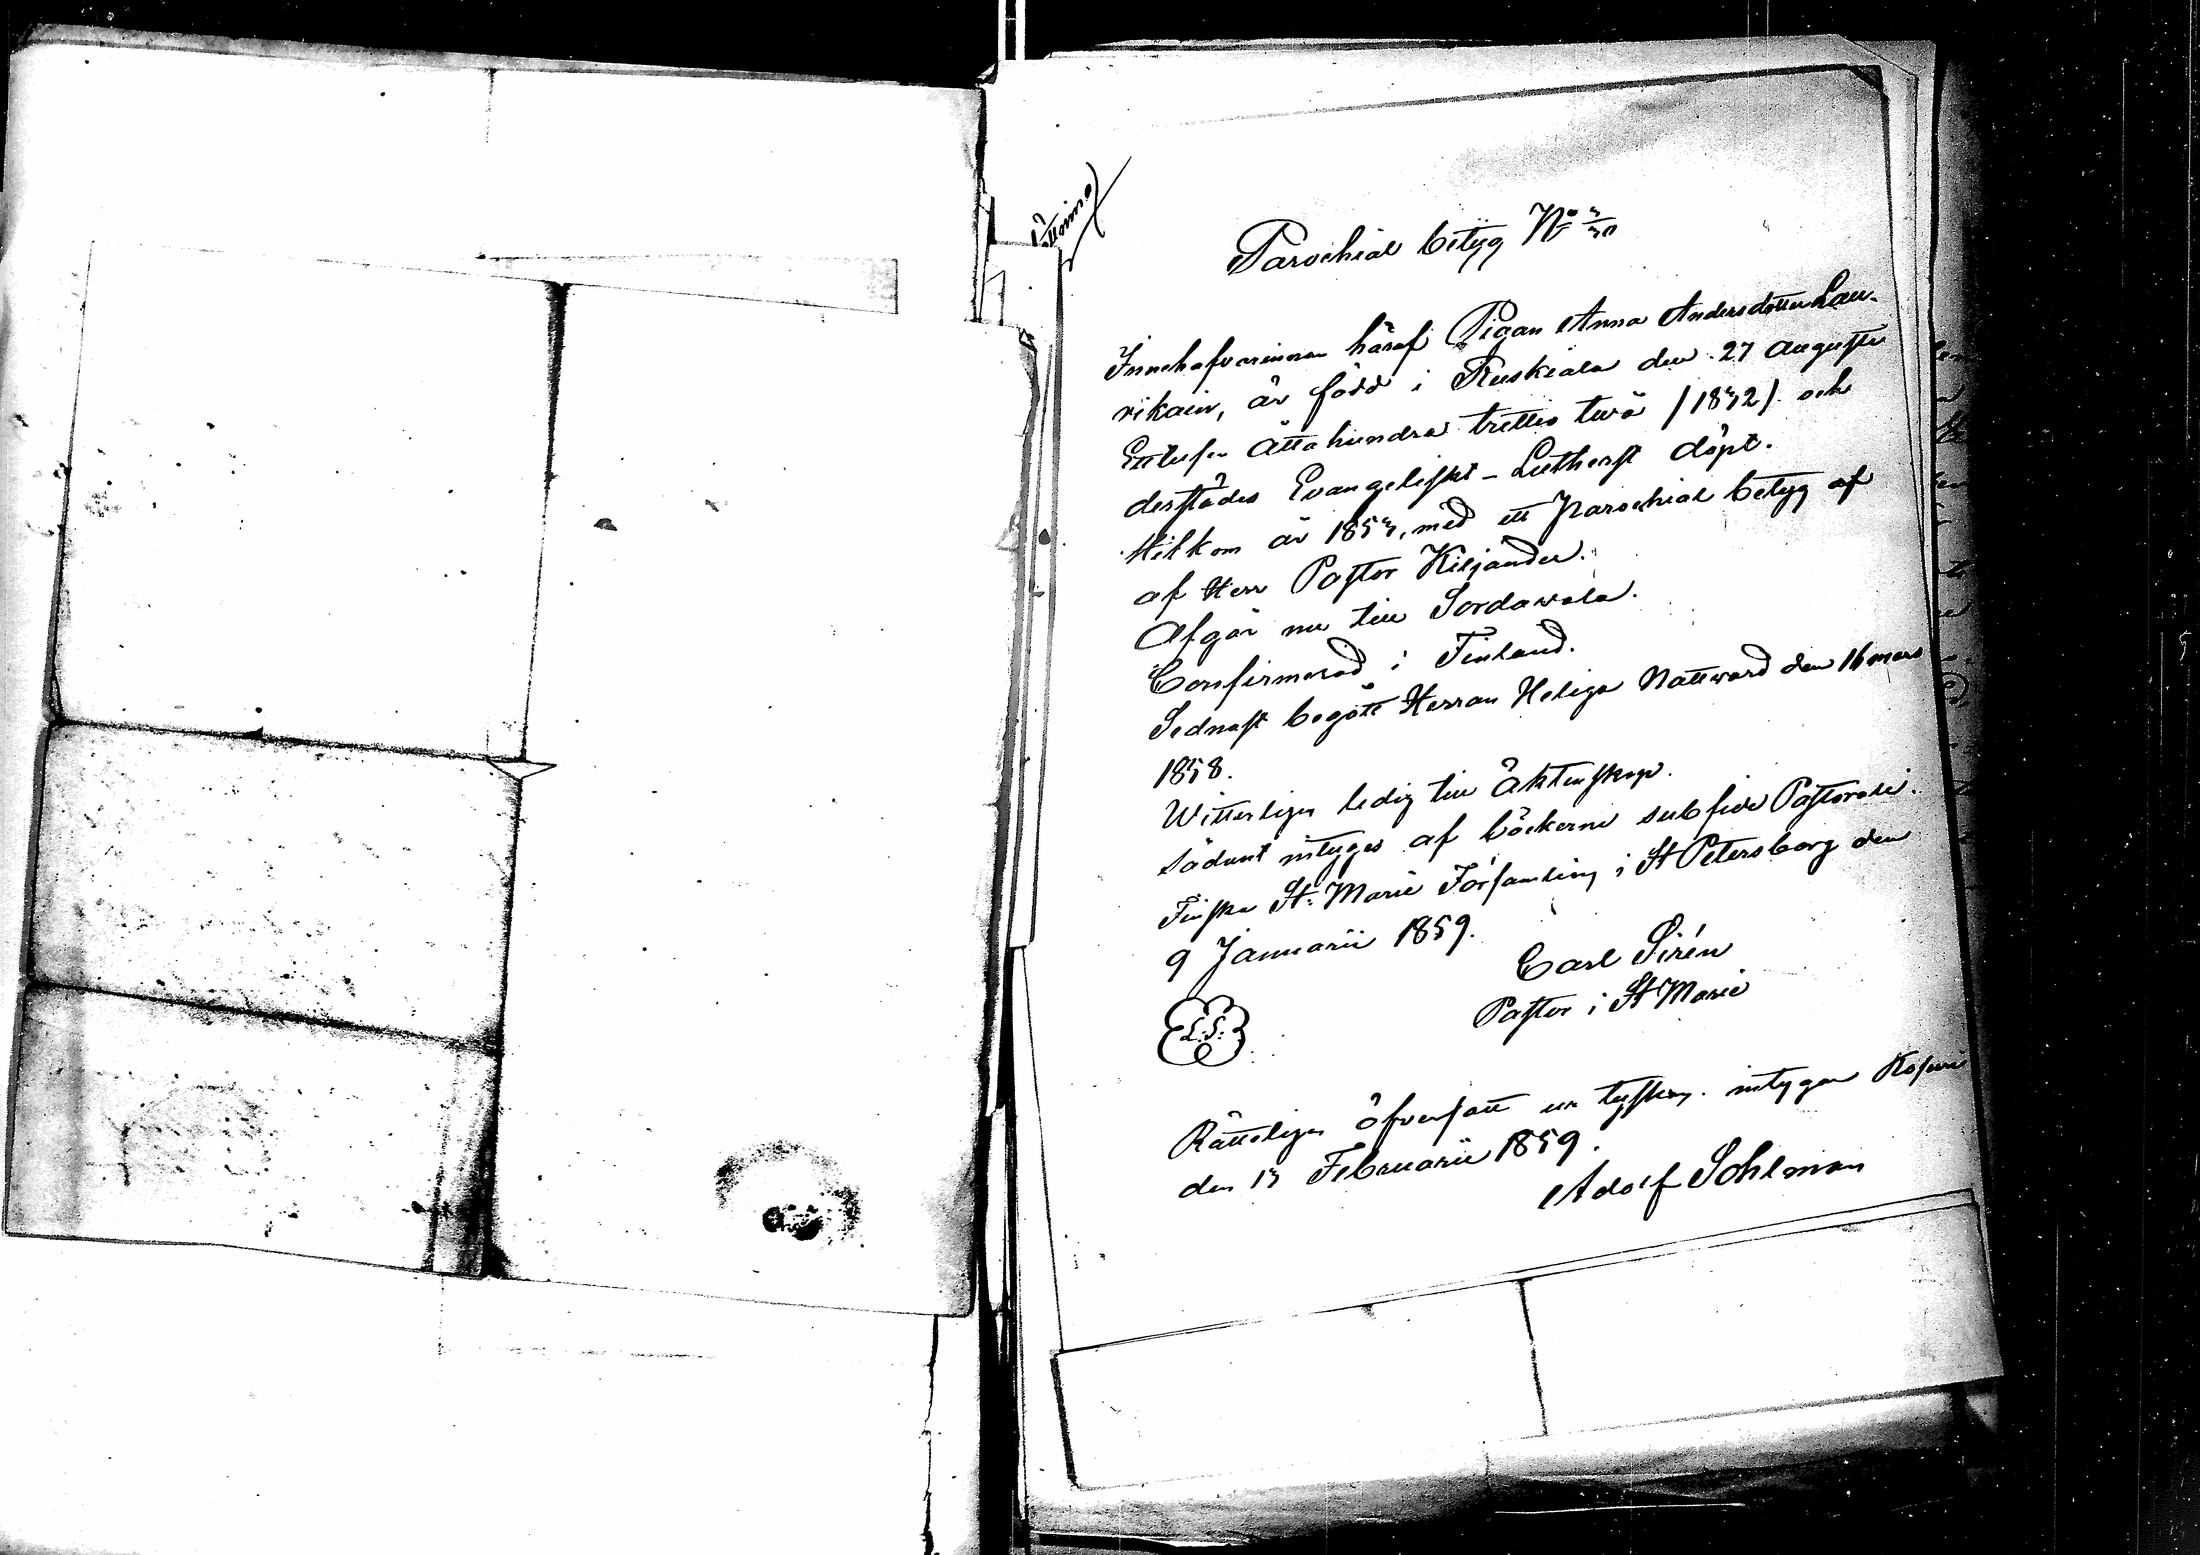 Parochial betyg No 3/30
Innehafvarinnan häraf Pigan Anna Andersdotter Lau-
rikain, är född i Ruskiala den 27 Augusti
Ettusen Åttahundra trettio twå /1832/ och
derstädes Evangeliskt-Lutherst döpt.
Hitkom år 1853, med ett Parochial betyg af
af Herr Pastor Kiljander.
Afgår nu till Sordawala.
Confirmerad i Finland.
Sednast begått Herrans Heliga Nattward den 16 mars
1858.
Witterligen ledig till Äktenskap.
Sådant intygas af böckerne sub fide Pastorali.
Finska St. Marie Församling i St Petersborg den
9 Januarii 1859.
Carl Sirén
Pastor i St Marie
L.S.
Rätteligen öfversatt ur tyskan, intygar
den 13 Februarii 1859.
Adolf Sohlman